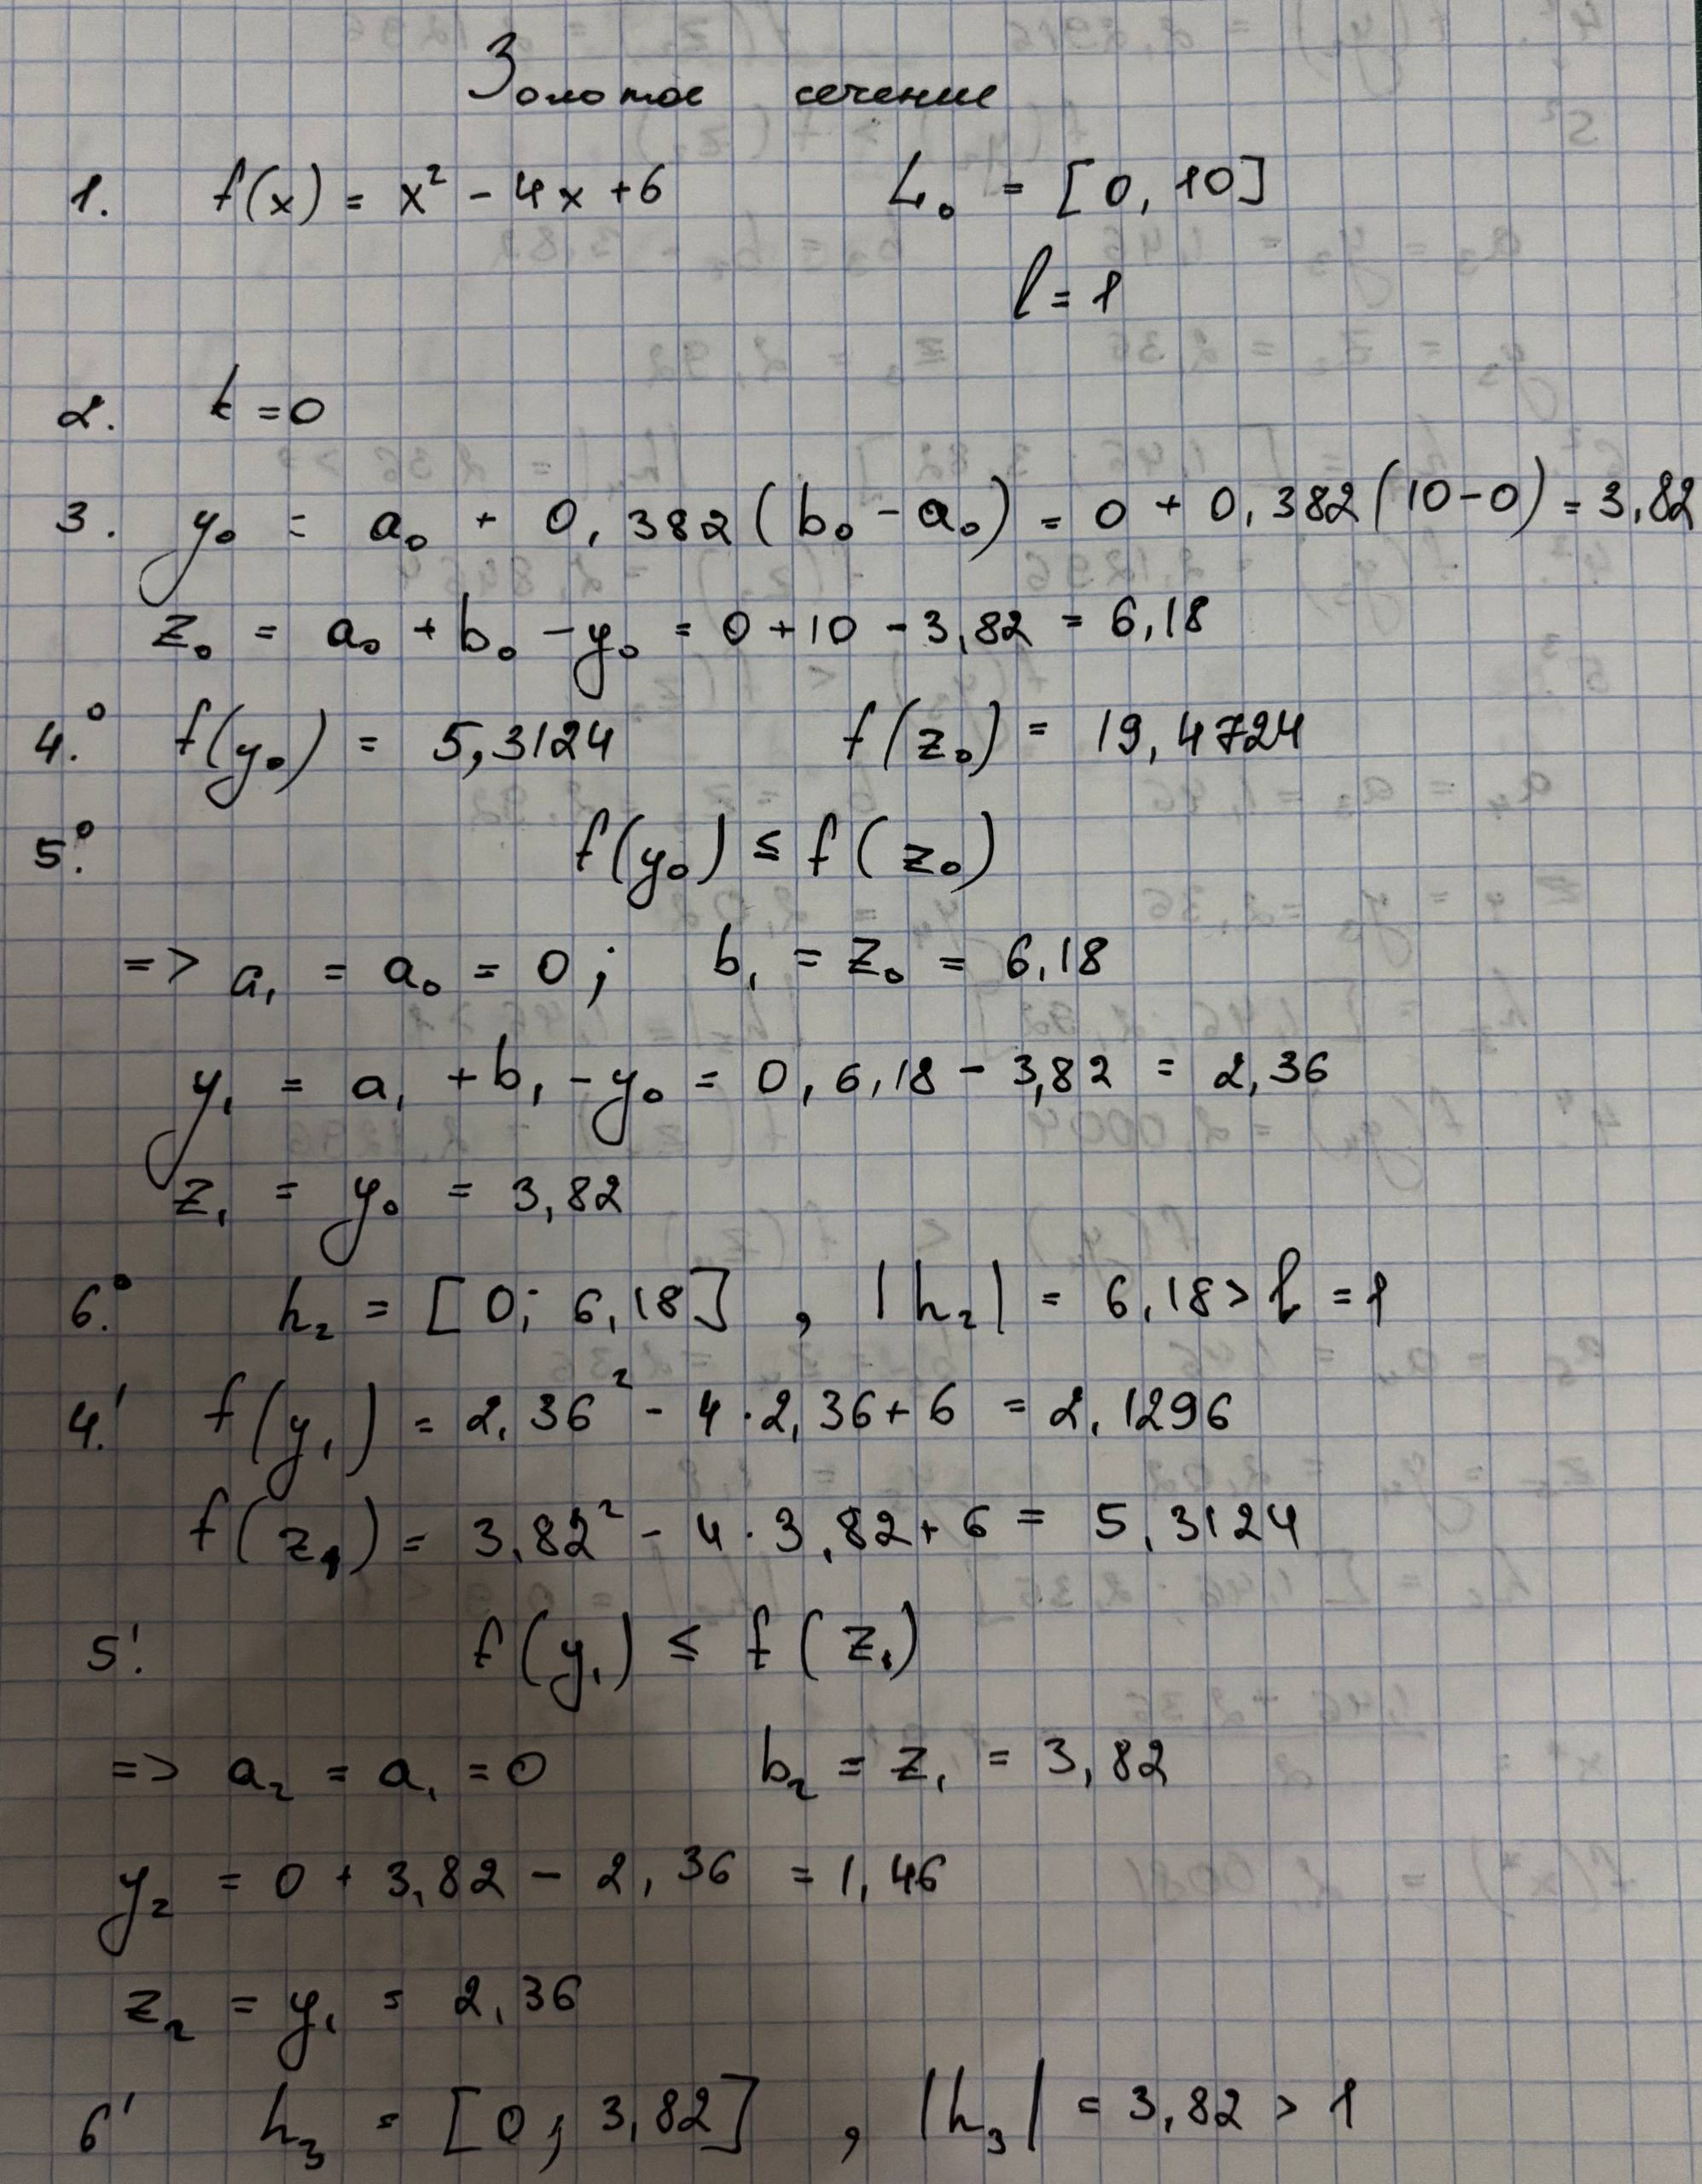 Золотое сечение
1. f(x) = x² - 4x + 6 L₀ = [0, 10]
l = 1
2. k = 0
3. y₀ = a₀ + 0,382(b₀ - a₀) = 0 + 0,382(10 - 0) = 3,82
z₀ = a₀ + b₀ - y₀ = 0 + 10 - 3,82 = 6,18
4.⁰ f(y₀) = 5,3124 f(z₀) = 19,4724
5.⁰ f(y₀) ≤ f(z₀)
=> a₁ = a₀ = 0; b₁ = z₀ = 6,18
y₁ = a₁ + b₁ - y₀ = 0, 6,18 - 3,82 = 2,36
z₁ = y₀ = 3,82
6.⁰ h₂ = [0; 6,18] , |h₂| = 6,18 > l = 1
4.¹ f(y₁) = 2,36² - 4·2,36 + 6 = 2,1296
f(z₁) = 3,82² - 4·3,82 + 6 = 5,3124
5.¹ f(y₁) ≤ f(z₁)
=> a₂ = a₁ = 0 b₂ = z₁ = 3,82
y₂ = 0 + 3,82 - 2,36 = 1,46
z₂ = y₁ = 2,36
6¹ h₃ = [0; 3,82] , |h₃| = 3,82 > 1